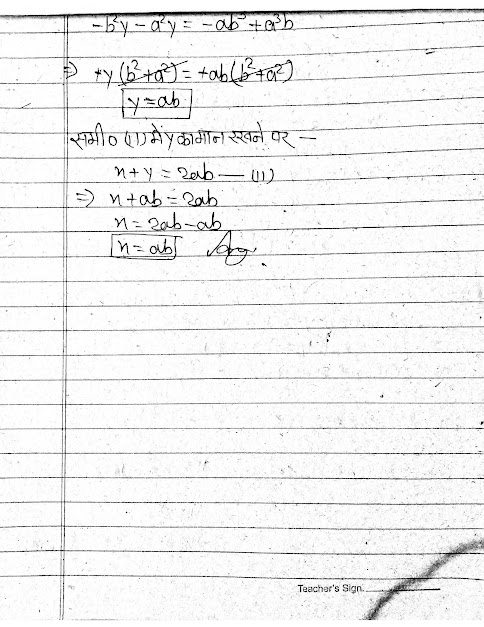 -b²y - a²y = -ab³ + a³b
⇒ +y(b²+a²) = +ab(b²+a²)
y = ab
समी० (11) में y का मान रखने पर —
x + y = 2ab — (11)
⇒ x + ab = 2ab
x = 2ab - ab
x = ab Ans
Teacher's Sign.